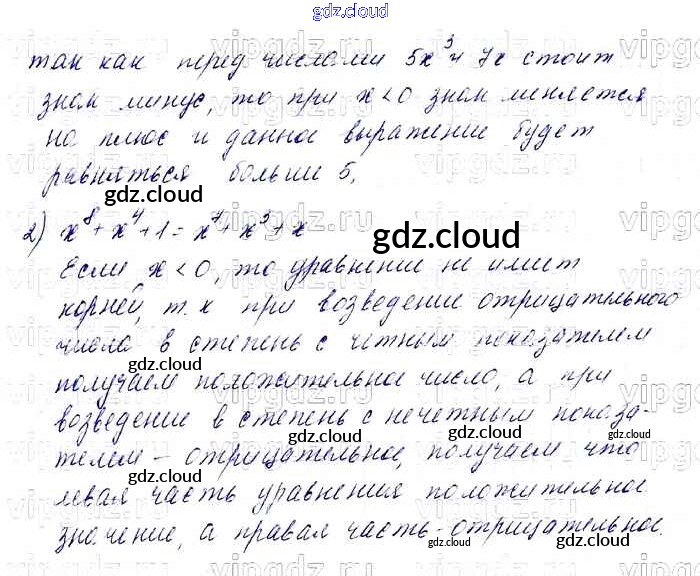 gdz.cloud
так как перед числами 5x³ и 7x стоит
знак минус, то при x<0 знак меняется
на плюс и данное выражение будет
равняться больши 5,
gdz.cloud
2) x⁸+x⁴+1=x⁷+x³+x
gdz.cloud
Если x<0, то уравнение не имеет
корней, т.к при возведение отрицательного
числа в степень с четным показателем
gdz.cloud
получаем положительное число, а при
возведение в степень с нечетным показа-
gdz.cloud
телем - отрицательное, получаем что
gdz.cloud
левая часть уравнения положительное
значение, а правая часть - отрицательное.
gdz.cloud
gdz.cloud